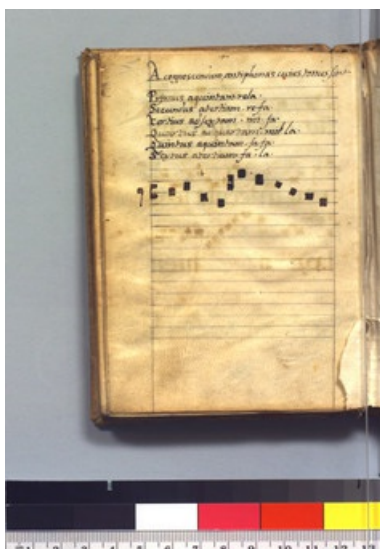 A cognoscendum antiphonas cuius tonus sint
Primus a quintam re la.
Secundus a tertiam. re. fa
Tertius ad sextam. mi. fa.
Quartus ad quartam. mi. la.
Quintus a quintam. fa fa
Sextus a tertiam. fa. la.